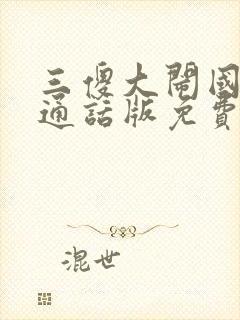 三傻大鬧國
通話版免費
混世